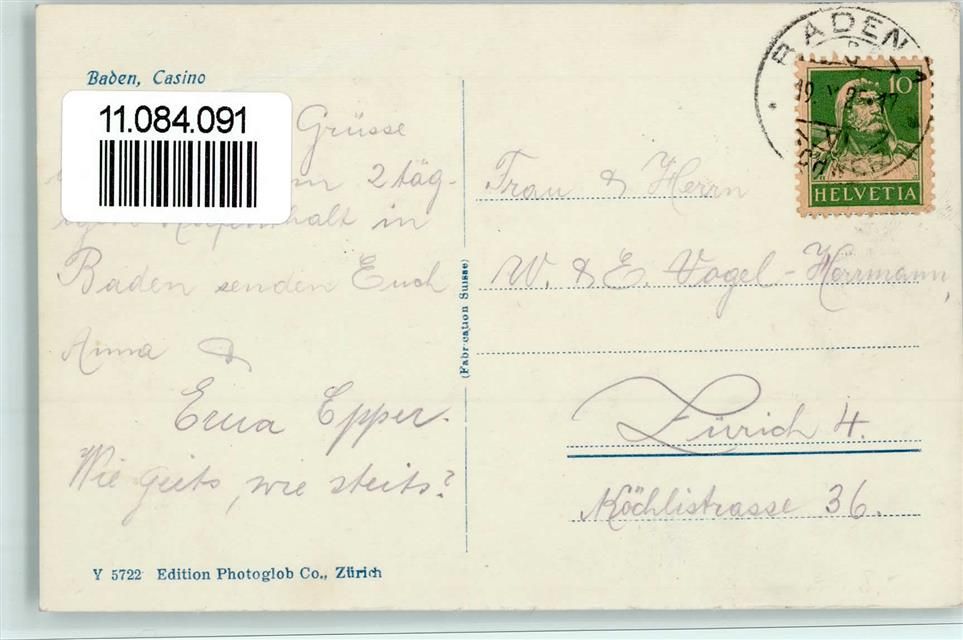 Baden, Casino
11.084.091
Grüsse
2täg-
in
Baden senden Euch
Anna &
Erna Epper.
Wie geits, wie steits?
Y 5722 Edition Photoglob Co., Zürich
(Fabrication Suisse)
BADEN
10
HELVETIA
Frau & Herrn
W. & E. Vogel-Herrmann,
Zürich 4.
Köchlistrasse 36.